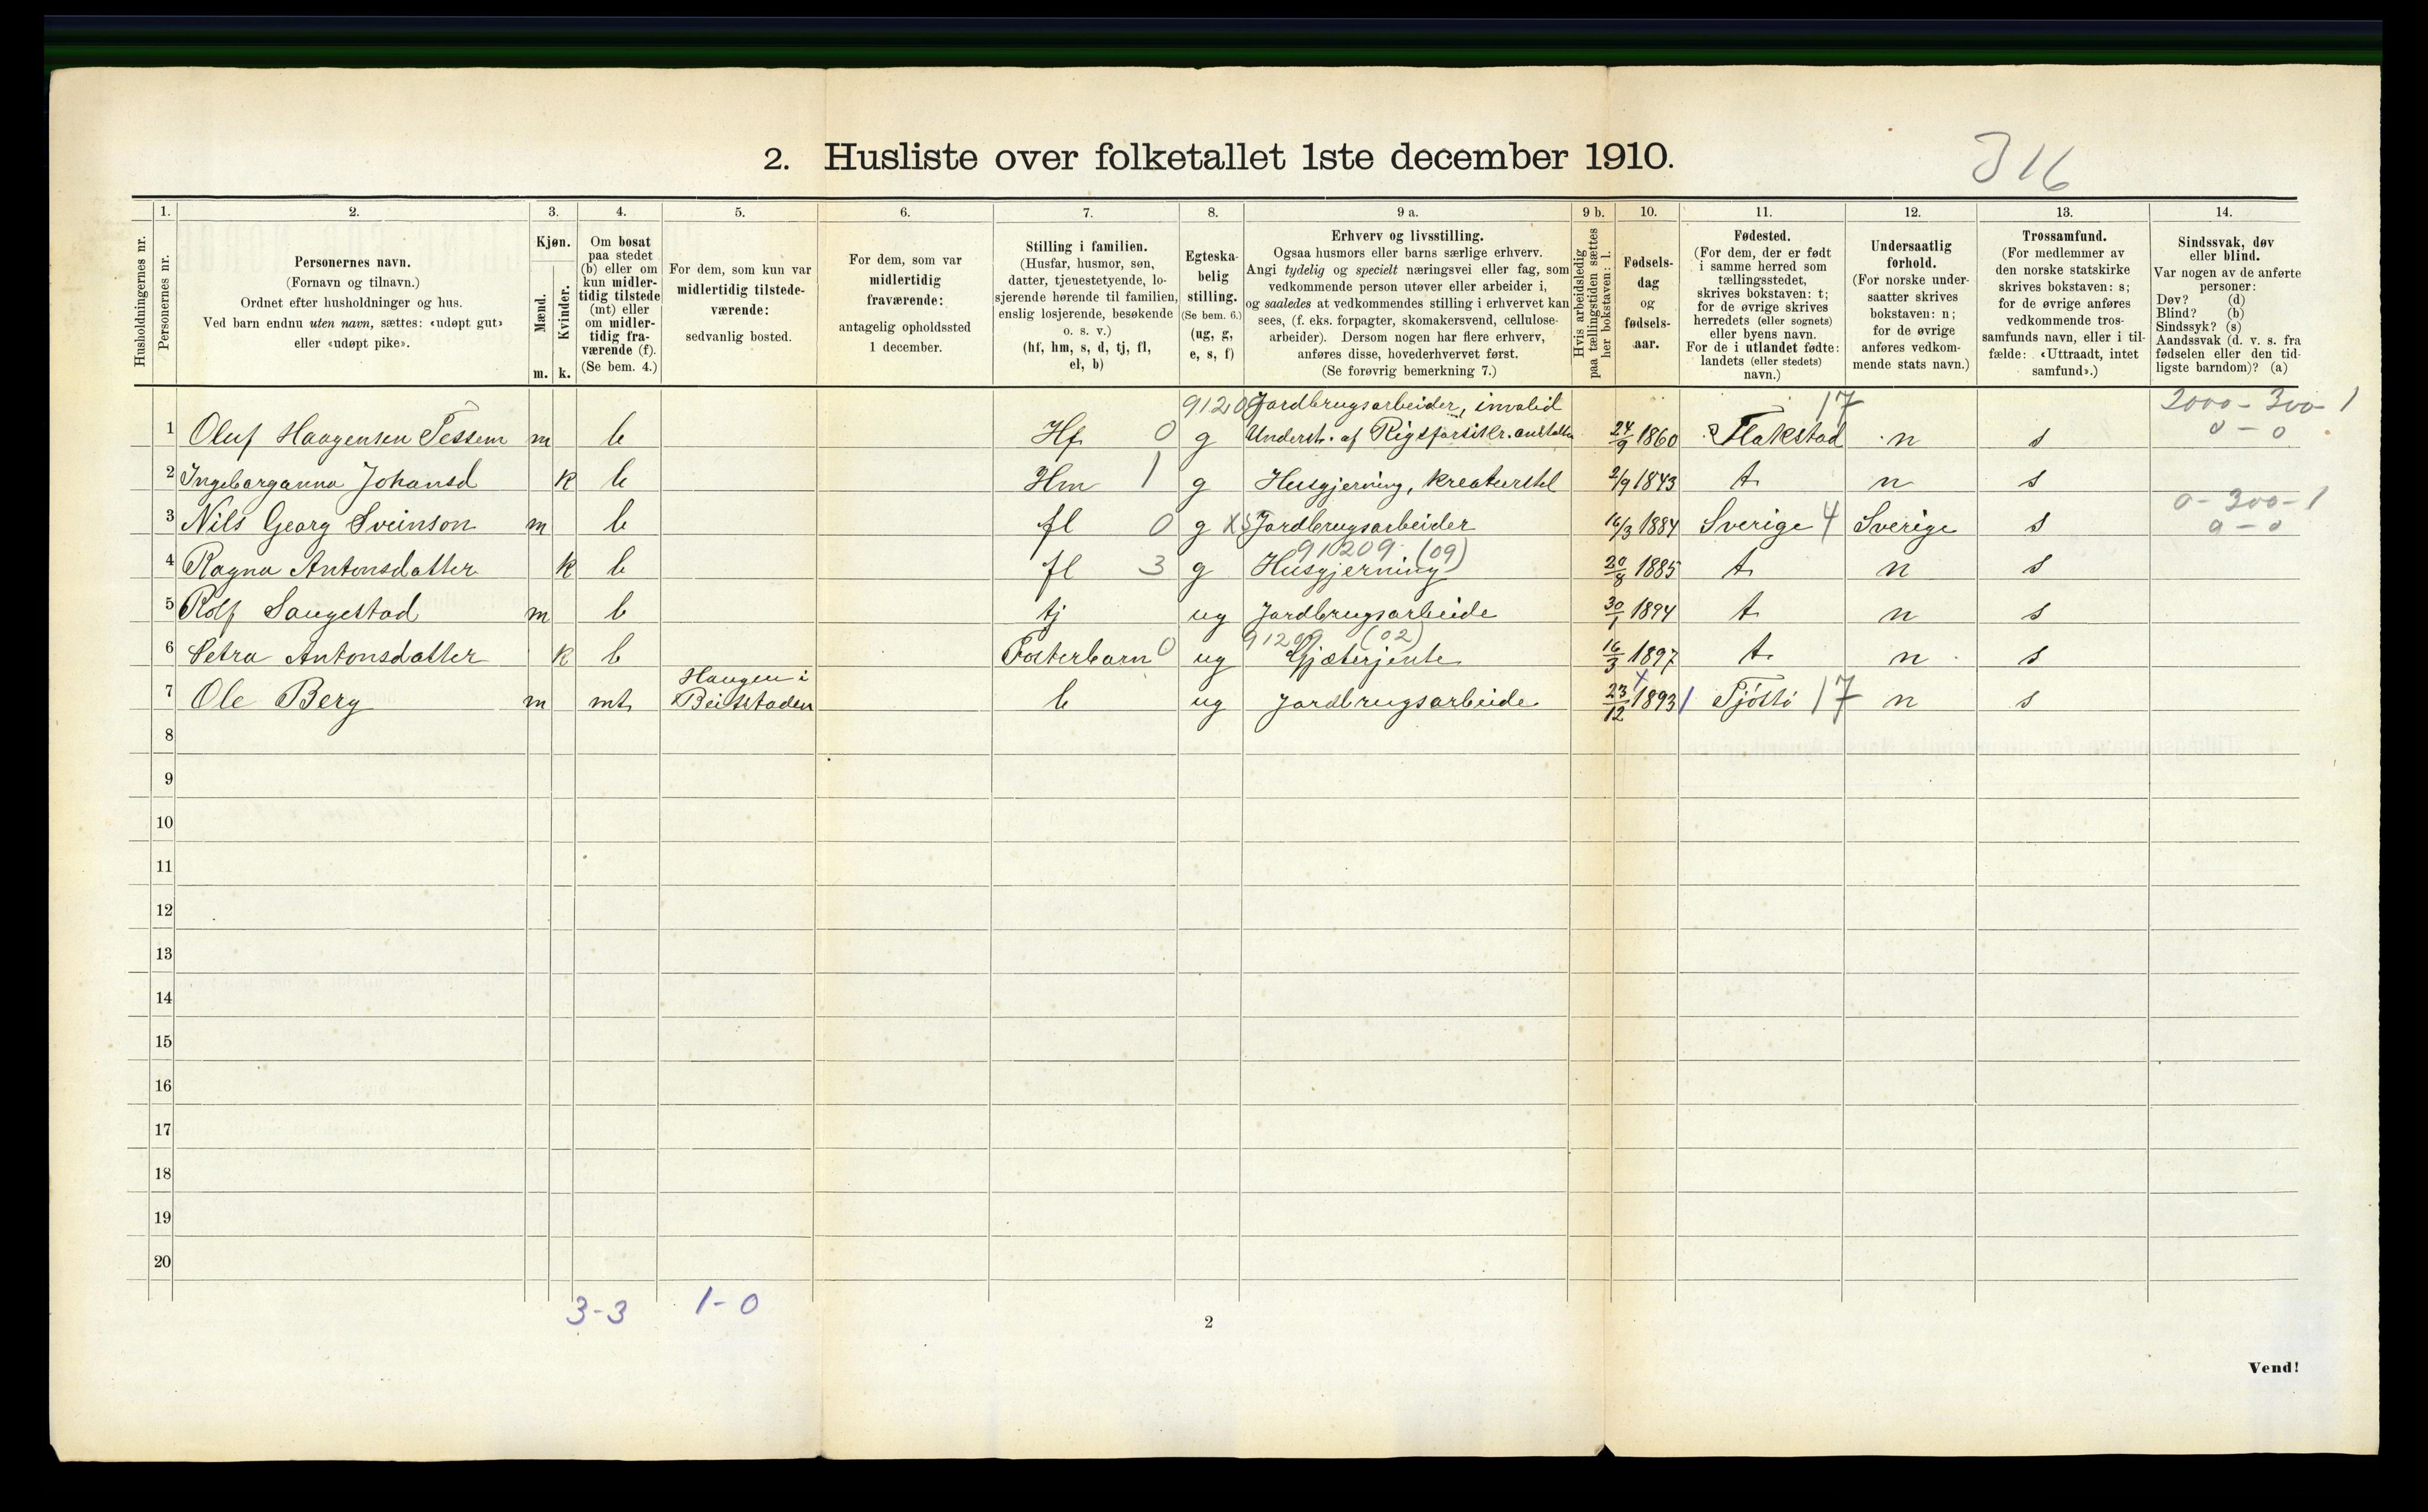 2. Husliste over folketallet 1ste december 1910.
316
Husholdningernes nr.
1.
Personernes nr.
2.
Personernes navn.
(Fornavn og tilnavn.)
Ordnet efter husholdninger og hus.
Ved barn endnu uten navn, sættes: «udøpt gut»
eller «udøpt pike».
3.
Kjøn.
Mænd.
Kvinder.
m. k.
4.
Om bosat
paa stedet
(b) eller om
kun midler-
tidig tilstede
(mt) eller
om midler-
tidig fra-
værende (f).
(Se bem. 4.)
5.
For dem, som kun var
midlertidig tilstede-
værende:
sedvanlig bosted.
6.
For dem, som var
midlertidig
fraværende:
antagelig opholdssted
1 december.
7.
Stilling i familien.
(Husfar, husmor, søn,
datter, tjenestetyende, lo-
sjerende hørende til familien,
enslig losjerende, besøkende
o. s. v.)
(hf, hm, s, d, tj, fl,
el, b)
8.
Egteska-
belig
stilling.
(Se bem. 6.)
(ug, g,
e, s, f)
9 a.
Erhverv og livsstilling.
Ogsaa husmors eller barns særlige erhverv.
Angi tydelig og specielt næringsvei eller fag, som
vedkommende person utøver eller arbeider i,
og saaledes at vedkommendes stilling i erhvervet kan
sees, (f. eks. forpagter, skomakersvend, cellulose-
arbeider). Dersom nogen har flere erhverv,
anføres disse, hovederhvervet først.
(Se forøvrig bemerkning 7.)
9 b.
Hvis arbeidsledig
paa tællingstiden sættes
her bokstaven: l.
10.
Fødsels-
dag
og
fødsels-
aar.
11.
Fødested.
(For dem, der er født
i samme herred som
tællingsstedet,
skrives bokstaven: t;
for de øvrige skrives
herredets (eller sognets)
eller byens navn.
For de i utlandet fødte:
landets (eller stedets)
navn.)
12.
Undersaatlig
forhold.
(For norske under-
saatter skrives
bokstaven: n;
for de øvrige
anføres vedkom-
mende stats navn.)
13.
Trossamfund.
(For medlemmer av
den norske statskirke
skrives bokstaven: s;
for de øvrige anføres
vedkommende tros-
samfunds navn, eller i til-
fælde: «Uttraadt, intet
samfund».)
14.
Sindssvak, døv
eller blind.
Var nogen av de anførte
personer:
Døv? (d)
Blind? (b)
Sindssyk? (s)
Aandssvak (d. v. s. fra
fødselen eller den tid-
ligste barndom)? (a)
91209 Jordbrugsarbeider, invalid 17 2000-300-1
1 Oluf Haagensen Tessem m b Hf 0 g Underst. af Rigsforsikr.anstalten 24/9 1860 Flakstad n s 0-0
2 Ingeborganna Johansd k b Hm 1 g Husgjerning, kreaturstel 2/9 1843 t n s
0-300-1
3 Nils Georg Sveinson m b fl 0 g Jordbrugsarbeider 16/3 1884 Sverige 4 Sverige s 0-0
91209 (09)
4 Ragna Antonsdatter k b fl 3 g Husgjerning 20/8 1885 t n s
5 Rolf Saugestad m b tj ug Jordbrugsarbeide 30/1 1894 t n s
91209 (02)
6 Petra Antonsdatter k b Fosterbarn 0 ug Gjæterjente 16/3 1897 t n s
Haugen i
7 Ole Berg m mt Beitstaden b ug Jordbrugsarbeide 23/12 1893 Tjøttø 17 n s
8
9
10
11
12
13
14
15
16
17
18
19
20
3-3 1-0
2
Vend!